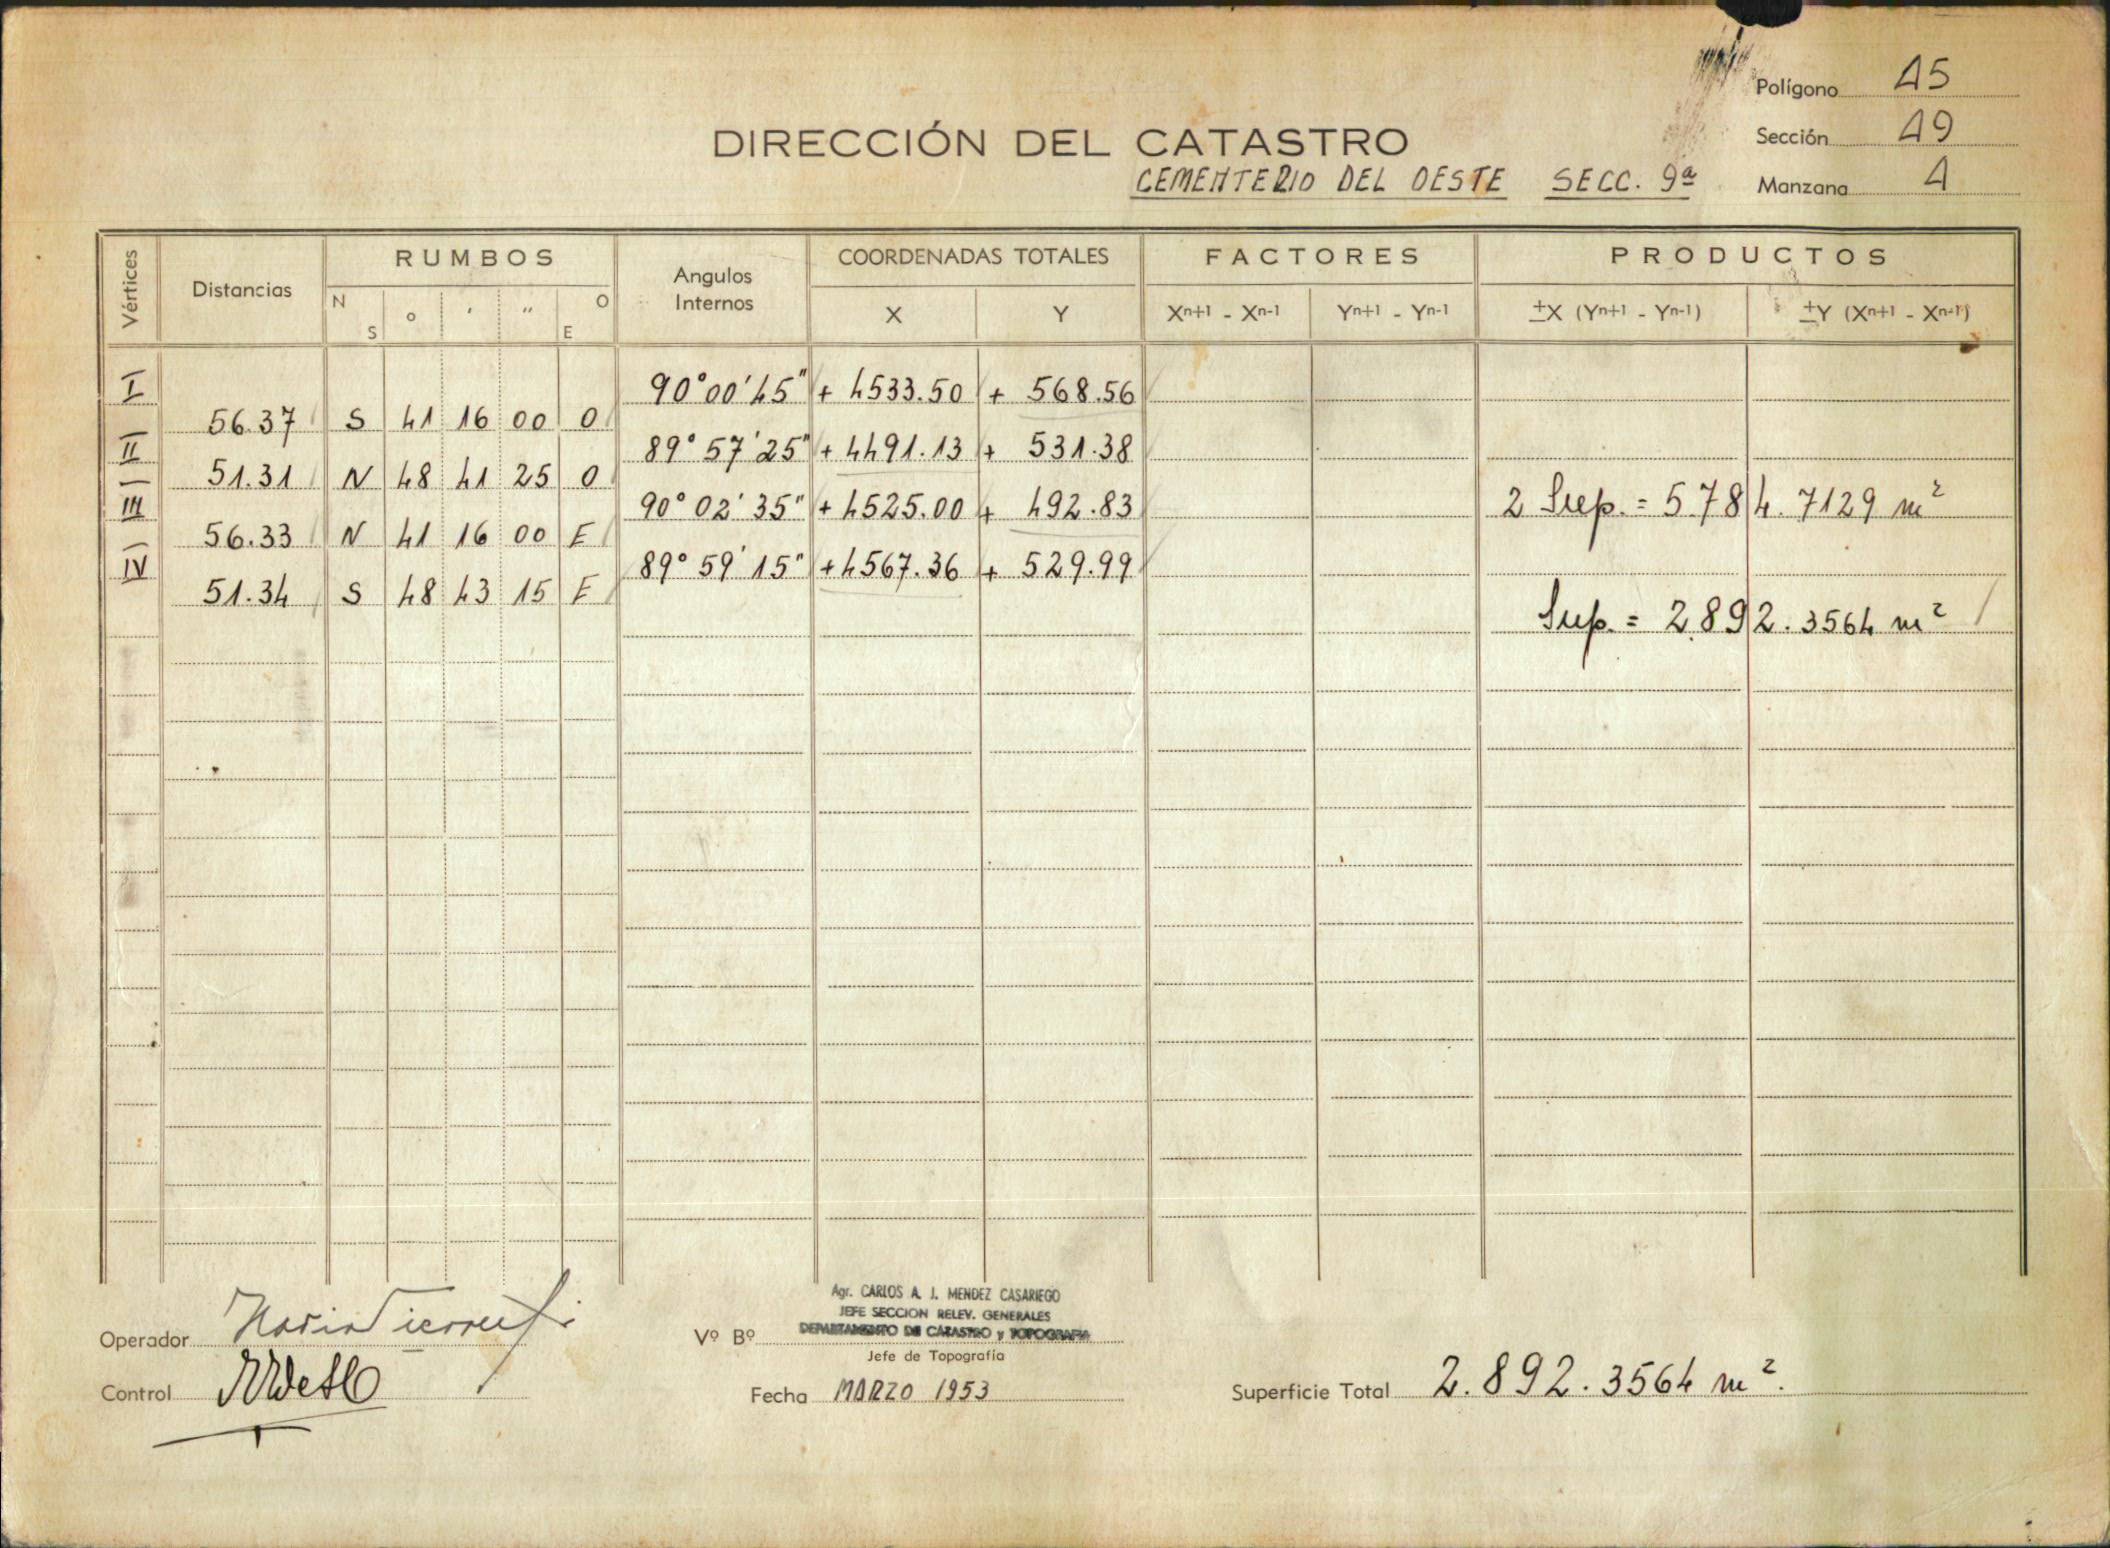 Polígono 15
DIRECCIÓN DEL CATASTRO
Sección 19
CEMENTERIO DEL OESTE SECC. 9ª
Manzana 1
Vértices Distancias RUMBOS Angulos Internos COORDENADAS TOTALES FACTORES PRODUCTOS
N S ° ' " O E X Y Xn+1 - Xn-1 Yn+1 - Yn-1 ±X (Yn+1 - Yn-1) ±Y (Xn+1 - Xn-1)
I 90°00'45" + 4533.50 + 568.56
56.37 S 41 16 00 O
II 89°57'25" + 4491.13 + 531.38
51.31 N 48 41 25 O
III 90°02'35" + 4525.00 + 492.83 2 Sup. = 5.784.7129 m²
56.33 N 41 16 00 E
IV 89°59'15" + 4567.36 + 529.99
51.34 S 48 43 15 E
Sup. = 2.892.3564 m²
Agr. CARLOS A. J. MENDEZ CASARIEGO
JEFE SECCION RELEV. GENERALES
DEPARTAMENTO DE CATASTRO y TOPOGRAFIA
Operador Vº Bº
Jefe de Topografía
Control Fecha MARZO 1953 Superficie Total 2.892.3564 m².